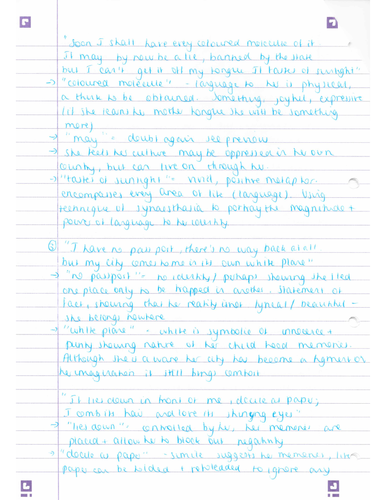 "Soon I shall have every coloured molecule of it
It may by now be a lie, banned by the state
but I can't get it off my tongue. It tastes of sunlight"
→ "coloured molecule" - language to her is physical,
a think to be obtained. Something joyful, expressive
(if she learns her mother tongue she will be something
more)
→ "may" - doubt again see previous
→ She feels her culture may be oppressed in her own
country, but can live on through her
→ "tastes of sunlight" - vivid, positive metaphor-
encompasses every area of life (language). Using
technique of synaesthesia to portray the magnitude +
power of language to her identity
"I have no passport, there's no way back at all
but my city comes to me in its own white plane"
→ "no passport" - no identity / perhaps showing she fled
one place only to be trapped in another. Statement of
fact, showing that her reality isn't lyrical / beautiful -
she belongs nowhere
→ "white plane" - white is symbolic of innocence +
purity showing nature of her childhood memories.
Although she is aware her city has become a figment of
her imagination it still brings comfort
"It lies down in front of me, docile as paper;
I comb its hair and love its shining eyes"
→ "lies down" - controlled by her, her memories are
placid + allow her to block out negativity
→ "docile as paper" - simile suggests her memories, like
paper can be folded + refolded to ignore any